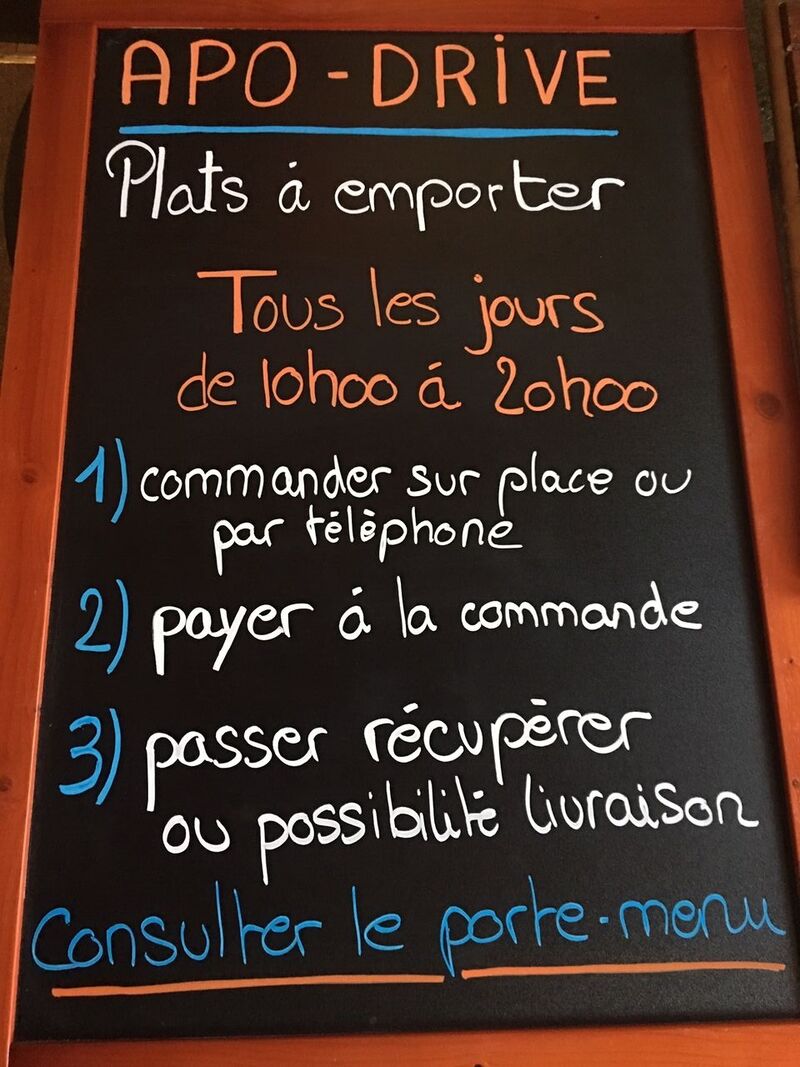 APO-DRIVE
Plats á emporter
Tous les jours
de 10h00 á 20h00
1) commander sur place ou
par télèphone
2) payer á la commande
3) passer récupèrer
ou possibilité livraison
Consulter le porte-menu